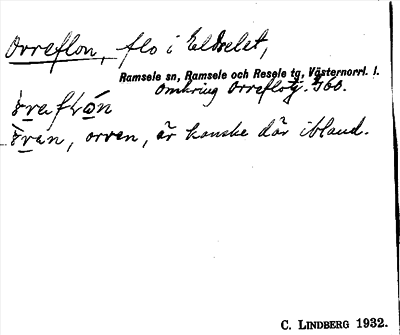 Orreflon, flo i Eldselet,
Ramsele sn, Ramsele och Resele tg, Västernorrl. l.
Omkring Orreflotj. 360.
òreflón
òran, orren, är kanske där ibland.
C. LINDBERG 1932.